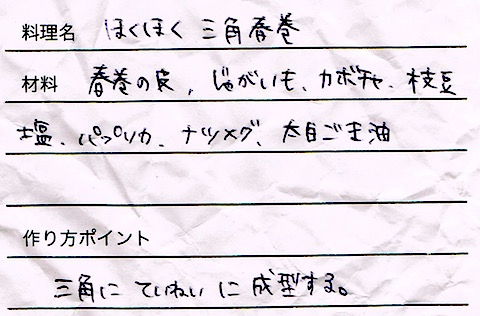 料理名 ほくほく 三角春巻
材料 春巻の皮、じゃがいも、カボチャ、枝豆
塩、パプリカ、ナツメグ、太白ごま油
作り方ポイント
三角に ていねいに 成型する。